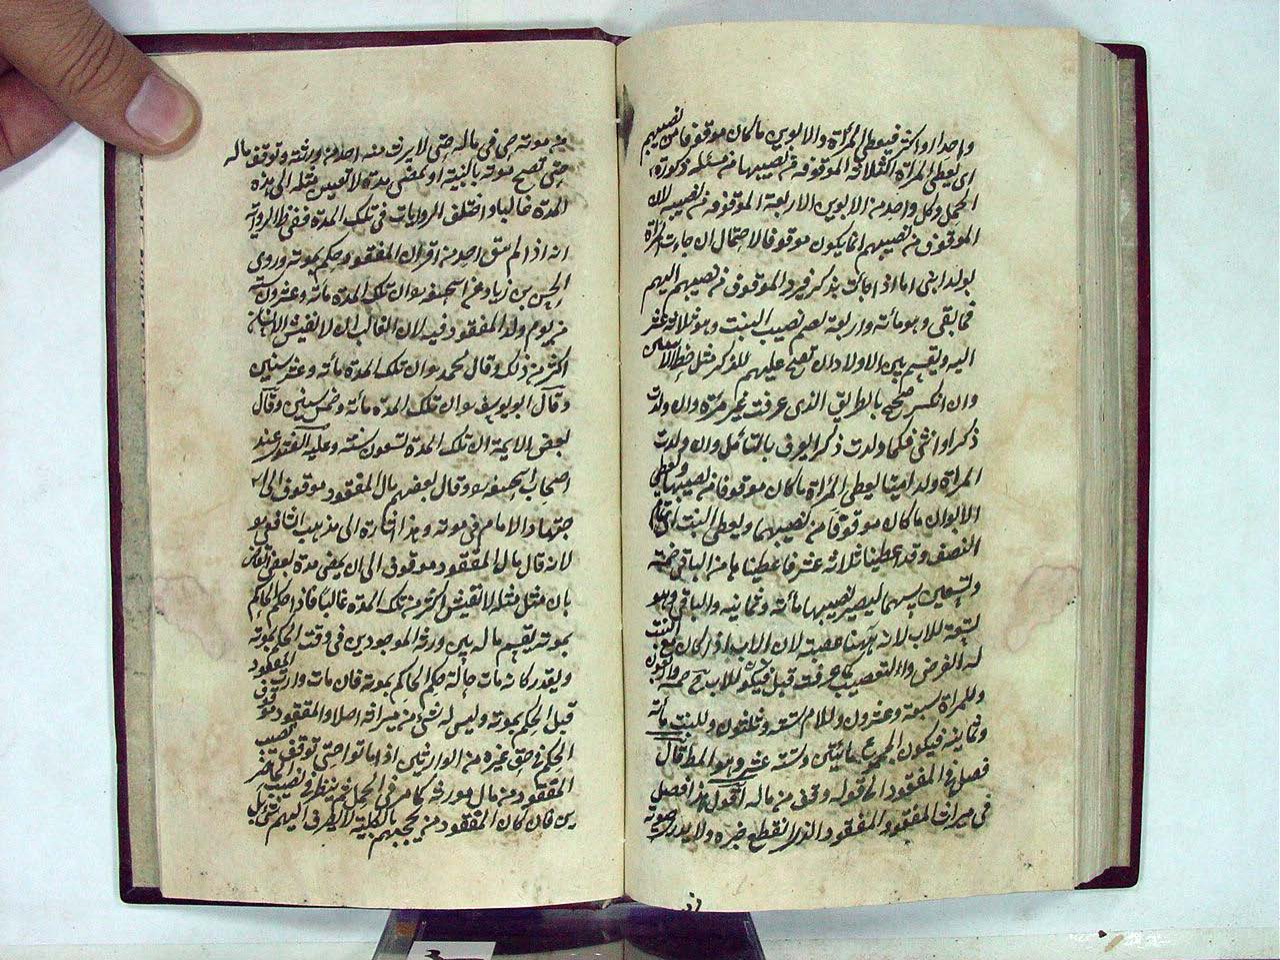 واحدا او اكثر فيعطى المرأة والابوين ما كان موقوفا من نصيبهم
اى يعطى المرأة الثلاثة الموقوفة من نصيبها من مسئلة ذكورة
الحمل وكل واحد من الابوين الاربعة الموقوفة من نصيبه لان
الموقوف من نصيبهم انما يكون موقوفا لاحتمال ان جاءت المرأة
بولد ابنى اما اذا جاءت بذكر فيرد الموقوف من نصيبهم اليهم
فما بقى وهو مأئة واربعة يضم نصيب البنت وهو ثلاثة عشر
اليه ويقسم بين الاولاد ان تصح عليهم للذكر مثل حظ الانثيين
وان انكسر صحح بالطريق الذى عرفت غير مرة وان ولدت
ذكرا وانثى فكما ولدت ذكرا يعرف بالتأمل وان ولدت
المرأة ولدا ميتا يعطى المرأة ما كان موقوفا من نصيبها ويعطى
الابوان ما كان موقوفا من نصيبهما ويعطى البنت الى تمام
النصف وقد اعطينا ثلاثة عشر فاعطينا ها من الباقى خمسة
وتسعين سهما ليصير نصيبها مأئة وثمانية والباقى وهو
تسعة للاب لانه ههنا عصبة لان الاب اذا كان مع البنت
له الفرض والتعصيب كما عرفت قبل فيكون للاب ح خمسة واربعون
وللمرأة سبعة وعشرون وللام ستة وثلثون وللبنت مأئة
وثمانية فيكون المجموع مائتين وستة عشر وهو المط قال
فصل فى المفقود الخ قوله وقف من ماله اقول هذا فصل
فى ميراث المفقود المفقود الذى انقطع خبره ولا يدرى حيوته
من موته حى فى ماله حتى لا يرث منه احد من ورثته وتوقف ماله
حتى تصح موته بالبينة او يمضى مدة لا تعيش مثله الى هذه
المدة غالبا واختلف الروايات فى تلك المدة ففى ظ الرواية
انه اذا لم يبق احد من اقران المفقود حكم بموته وروى
الحسن بن زياد عن ابيحنيفة ان تلك المدة مائة وعشرون سنة
من يوم ولد المفقود فيه لان الغالب ان لا يعيش الانسان
اكثر من ذلك وقال محمد ان تلك المدة مأئة وعشر سنين
وقال ابو يوسف ان تلك المدة مأئة وخمس سنين وقال
بعض الايمة ان تلك المدة تسعون سنة وعليه الفتوى عند
اصحاب ابيحنيفة وقال بعضهم مال المفقود موقوف الى
اجتهاد الامام فى موته وهذا اشارة الى مذهب الشافعى
لانه قال مال المفقود موقوف الى ان يمضى مدة يعفى القاضى
بان مثل مثله لا تعيش اكثر من تلك المدة غالبا فاذا حكم الحاكم
بموته يقسم ماله بين ورثة الموجودين فى وقت الحكم بموته
ويقدر كانه مات حالة حكم الحاكم بموته فان مات وارث المفقود
قبل الحكم بموته وليس له شئ من ميراثه اصلا والمفقود موقوف
الحكم فى حق غيره من الوارثين اذا ماتوا حتى توقف نصيب
المفقود من مال مورثه كما مر فى الحمل ثم ينظر فى نصيب الحاضر
ين فان كان المفقود من يحجبهم بالكلية لا يصرف اليهم شئ بل